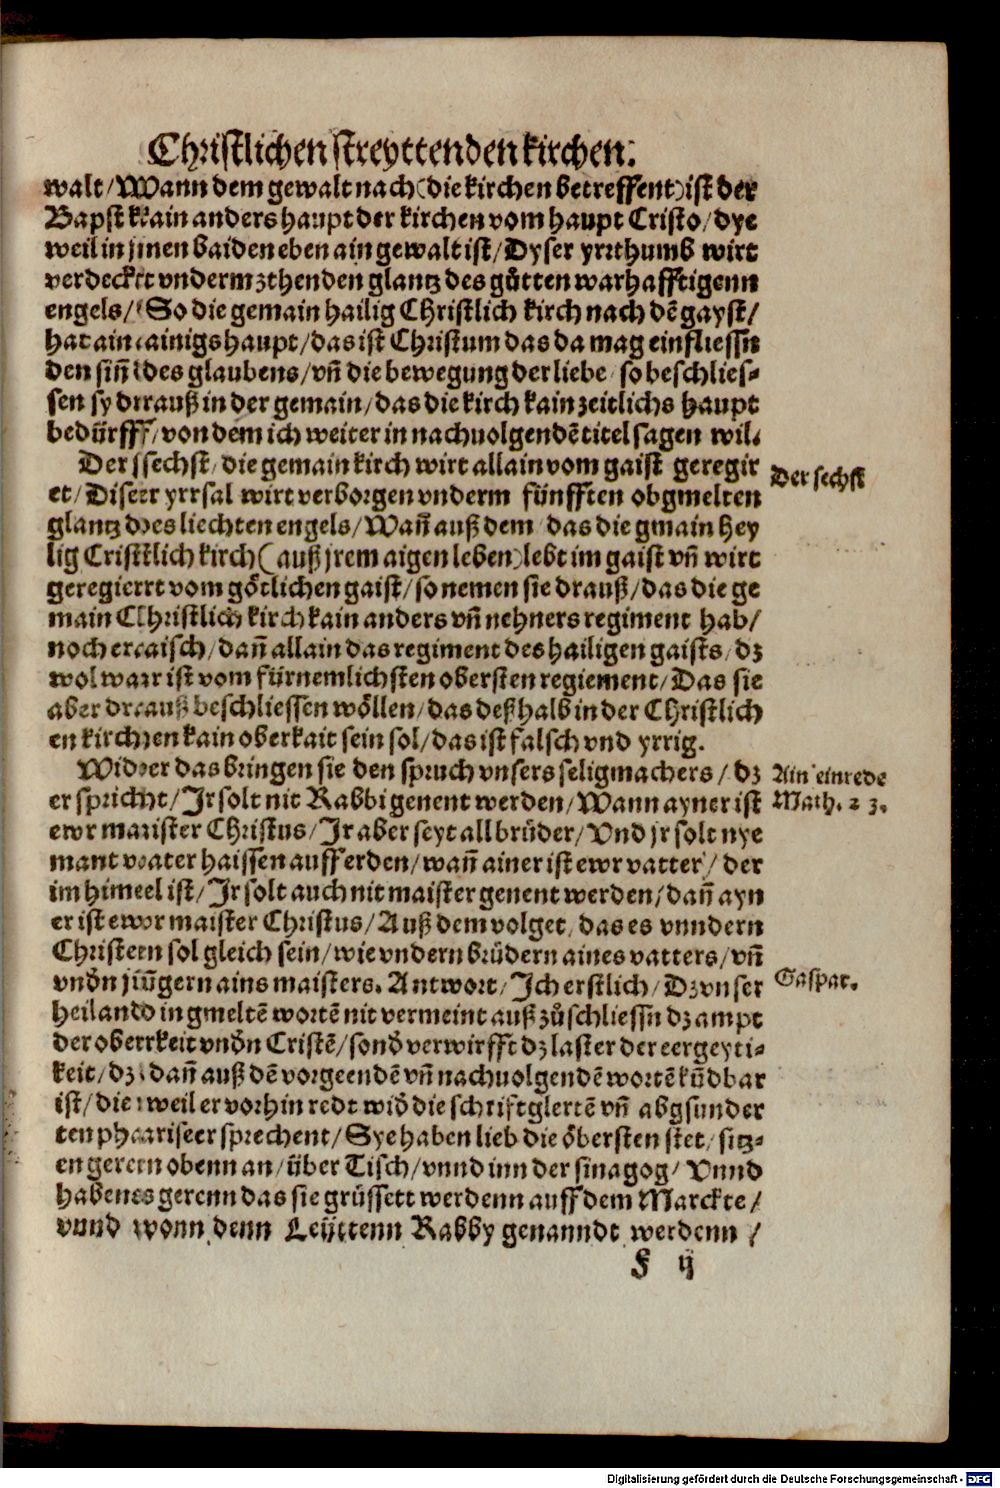 Christlichen streyttenden kirchen.
walt/ Wann dem gewalt nach (die kirchen betreffent) ist der
Bapst kain anders haupt der kirchen vom haupt Cristo/ dye
weil in jnen baiden eben ain gewalt ist/ Dyser yrrthumb wirt
verdeckt vnderm zthenden glantz des gůtten warhafftigenn
engels/ So die gemain hailig Christlich kirch nach dē gayst/
hat ain ainigs haupt/ das ist Christum das da mag einfliessn
den siñ des glaubens/ vñ die bewegung der liebe/ so beschlies-
sen sy drauß in der gemain/ das die kirch kain zeitlichs haupt
bedürff/ von dem ich weiter in nachuolgendē titel sagen wil.
Der sechst/ die gemain kirch wirt allain vom gaist geregir
et/ Diser yrrsal wirt verborgen vnderm fünfften obgmelten
glantz des liechten engels/ Wañ auß dem das die gmain hey
lig Cristlich kirch (auß jrem aigen leben) lebt im gaist vñ wirt
geregiert vom götlichen gaist/ so nemen sie drauß/ das die ge
main Christlich kirch kain anders vñ nehners regiment hab/
noch eraisch/ dañ allain das regiment des hailigen gaists/ dz
wol war ist vom fürnemlichsten obersten regiement/ Das sie
aber drauß beschliessen wöllen/ das deßhalb in der Christlich
en kirchen kain oberkait sein sol/ das ist falsch vnd yrrig.
Wider das bringen sie den spruch vnsers seligmachers/ dz
er spricht/ Jr solt nit Rabbi genent werden/ Wann ayner ist
ewr maister Christus/ Jr aber seyt all brüder/ Vnd jr solt nye
mant vater haissen auff erden/ wañ ainer ist ewr vatter/ der
im himeel ist/ Jr solt auch nit maister genent werden/ dañ ayn
er ist ewr maister Christus/ Auß dem volget/ das es vnndern
Christen sol gleich sein/ wie vndern brüdern aines vatters/ vñ
vndn jüngern ains maisters. Antwort/ Ich erstlich/ Dz vnser
heiland in gmeltē wortē nit vermeint auß zů schliessn dz ampt
der oberkeit vndn Cristē/ sond verwirfft dz laster der eergeyti-
keit/ dz dañ auß dē vorgeendē vñ nachuolgendē wortē kūdbar
ist/ die weil er vorhin redt wid die schriftglertē vñ abgsunder
ten phariseer sprechent/ Sye haben lieb die öbersten stet/ sitz-
en geren obenn an/ über Tisch/ vnnd inn der sinagog/ Vnnd
habens gerenn das sie grüssett werdenn auff dem Marckte/
vnnd wonn denn Leÿttenn Rabby genanndt werdenn/
F ij
Der sechst
Ain einrede
Math. 23.
Gaspar.
Digitalisierung gefördert durch die Deutsche Forschungsgemeinschaft - DFG